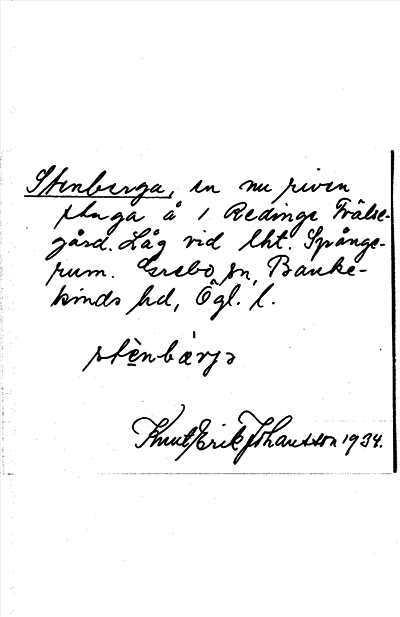 Stenberga, en nu riven
stuga å 1 Redings Frälse-
gård. Låg vid lht. Spånge-
rum. Grebo sn, Banke-
kinds hd, Ögl. l.
stènbærjə
Knut Erik Johansson 1934.